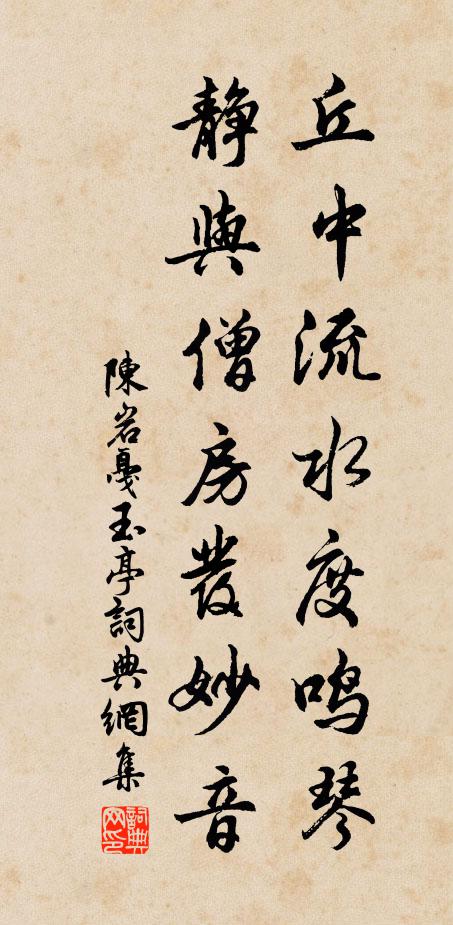 丘中流水度鳴琴
靜與僧房發妙音
陳岩戛玉亭詞典網集
詞典网印